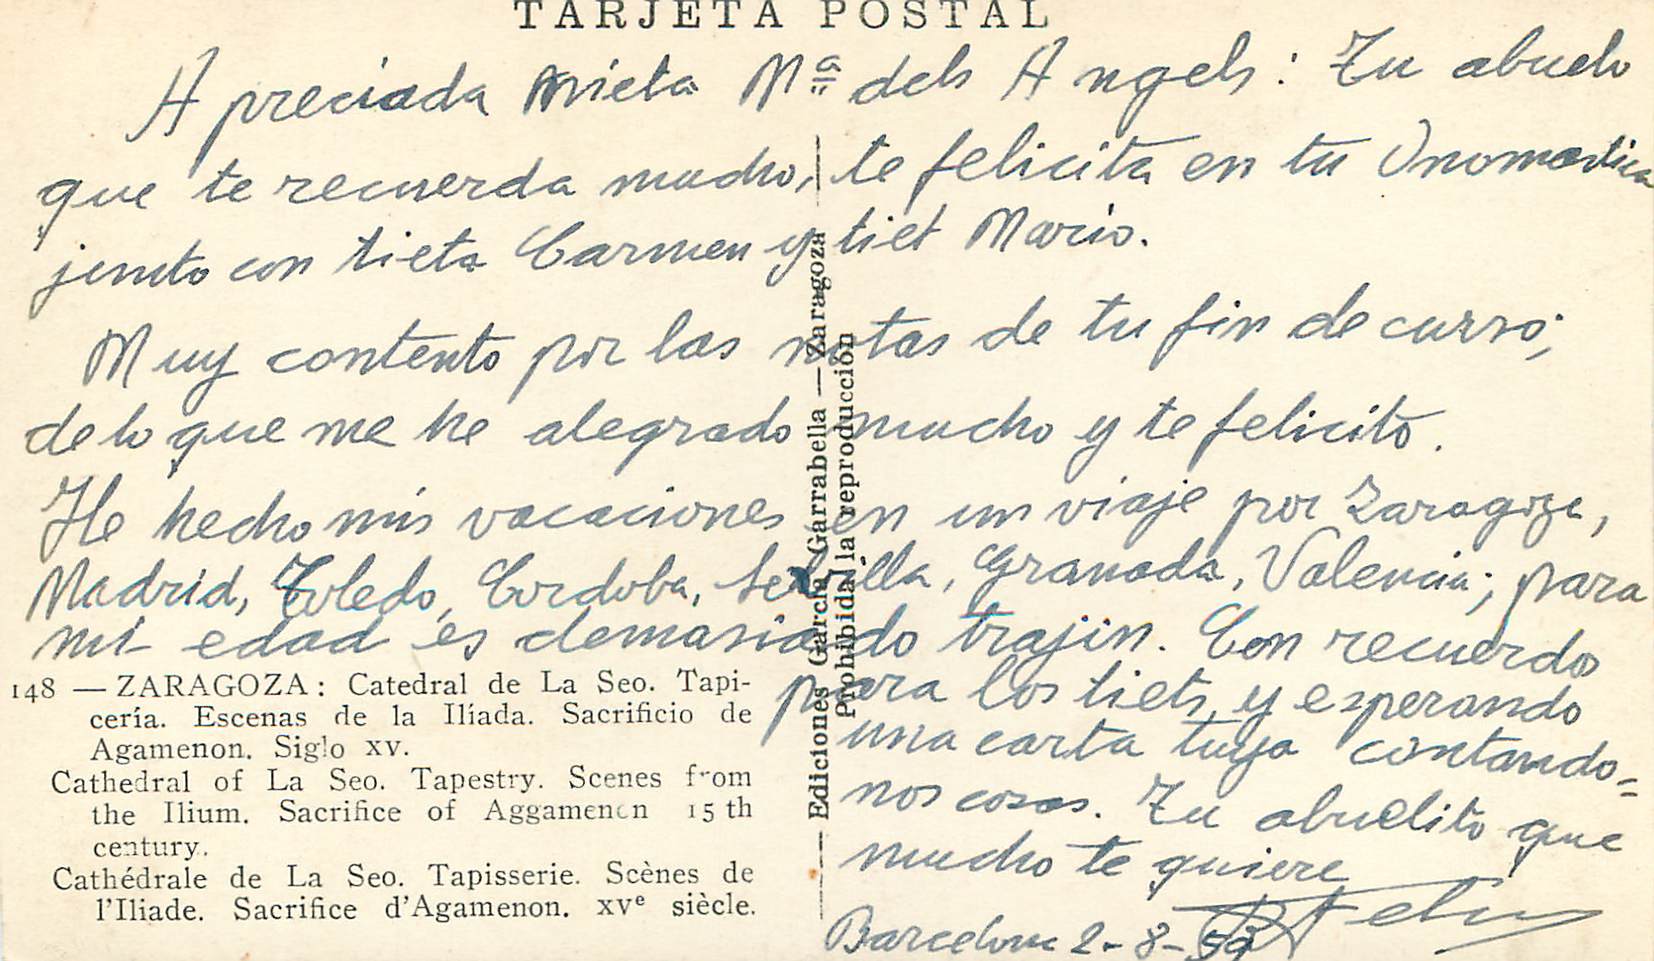 TARJETA POSTAL
Apreciada nieta Mª dels Angels: Tu abuelo
que te recuerda mucho, te felicita en tu Onomastica
junto con tieta Carmen y tiet Mario.
Muy contento por las notas de tu fin de curso;
de lo que me he alegrado mucho y te felicito.
He hecho mis vacaciones en un viaje por Zaragoza,
Madrid, Toledo, Cordoba, Sevilla, Granada, Valencia; para
mi edad es demasiado trajin. Con recuerdos
para los tiets, y esperando
una carta tuya contando=
nos cosas. Tu abuelito que
mucho te quiere
Barcelona 2-8-59
148 — ZARAGOZA: Catedral de La Seo. Tapi-
cería. Escenas de la Ilíada. Sacrificio de
Agamenon. Siglo XV.
Cathedral of La Seo. Tapestry. Scenes from
the Ilium. Sacrifice of Aggamenon 15 th
century.
Cathédrale de La Seo. Tapisserie. Scènes de
l'Iliade. Sacrifice d'Agamenon. XVe siècle.
Ediciones García Garrabella — Zaragoza
Prohibida la reproducción